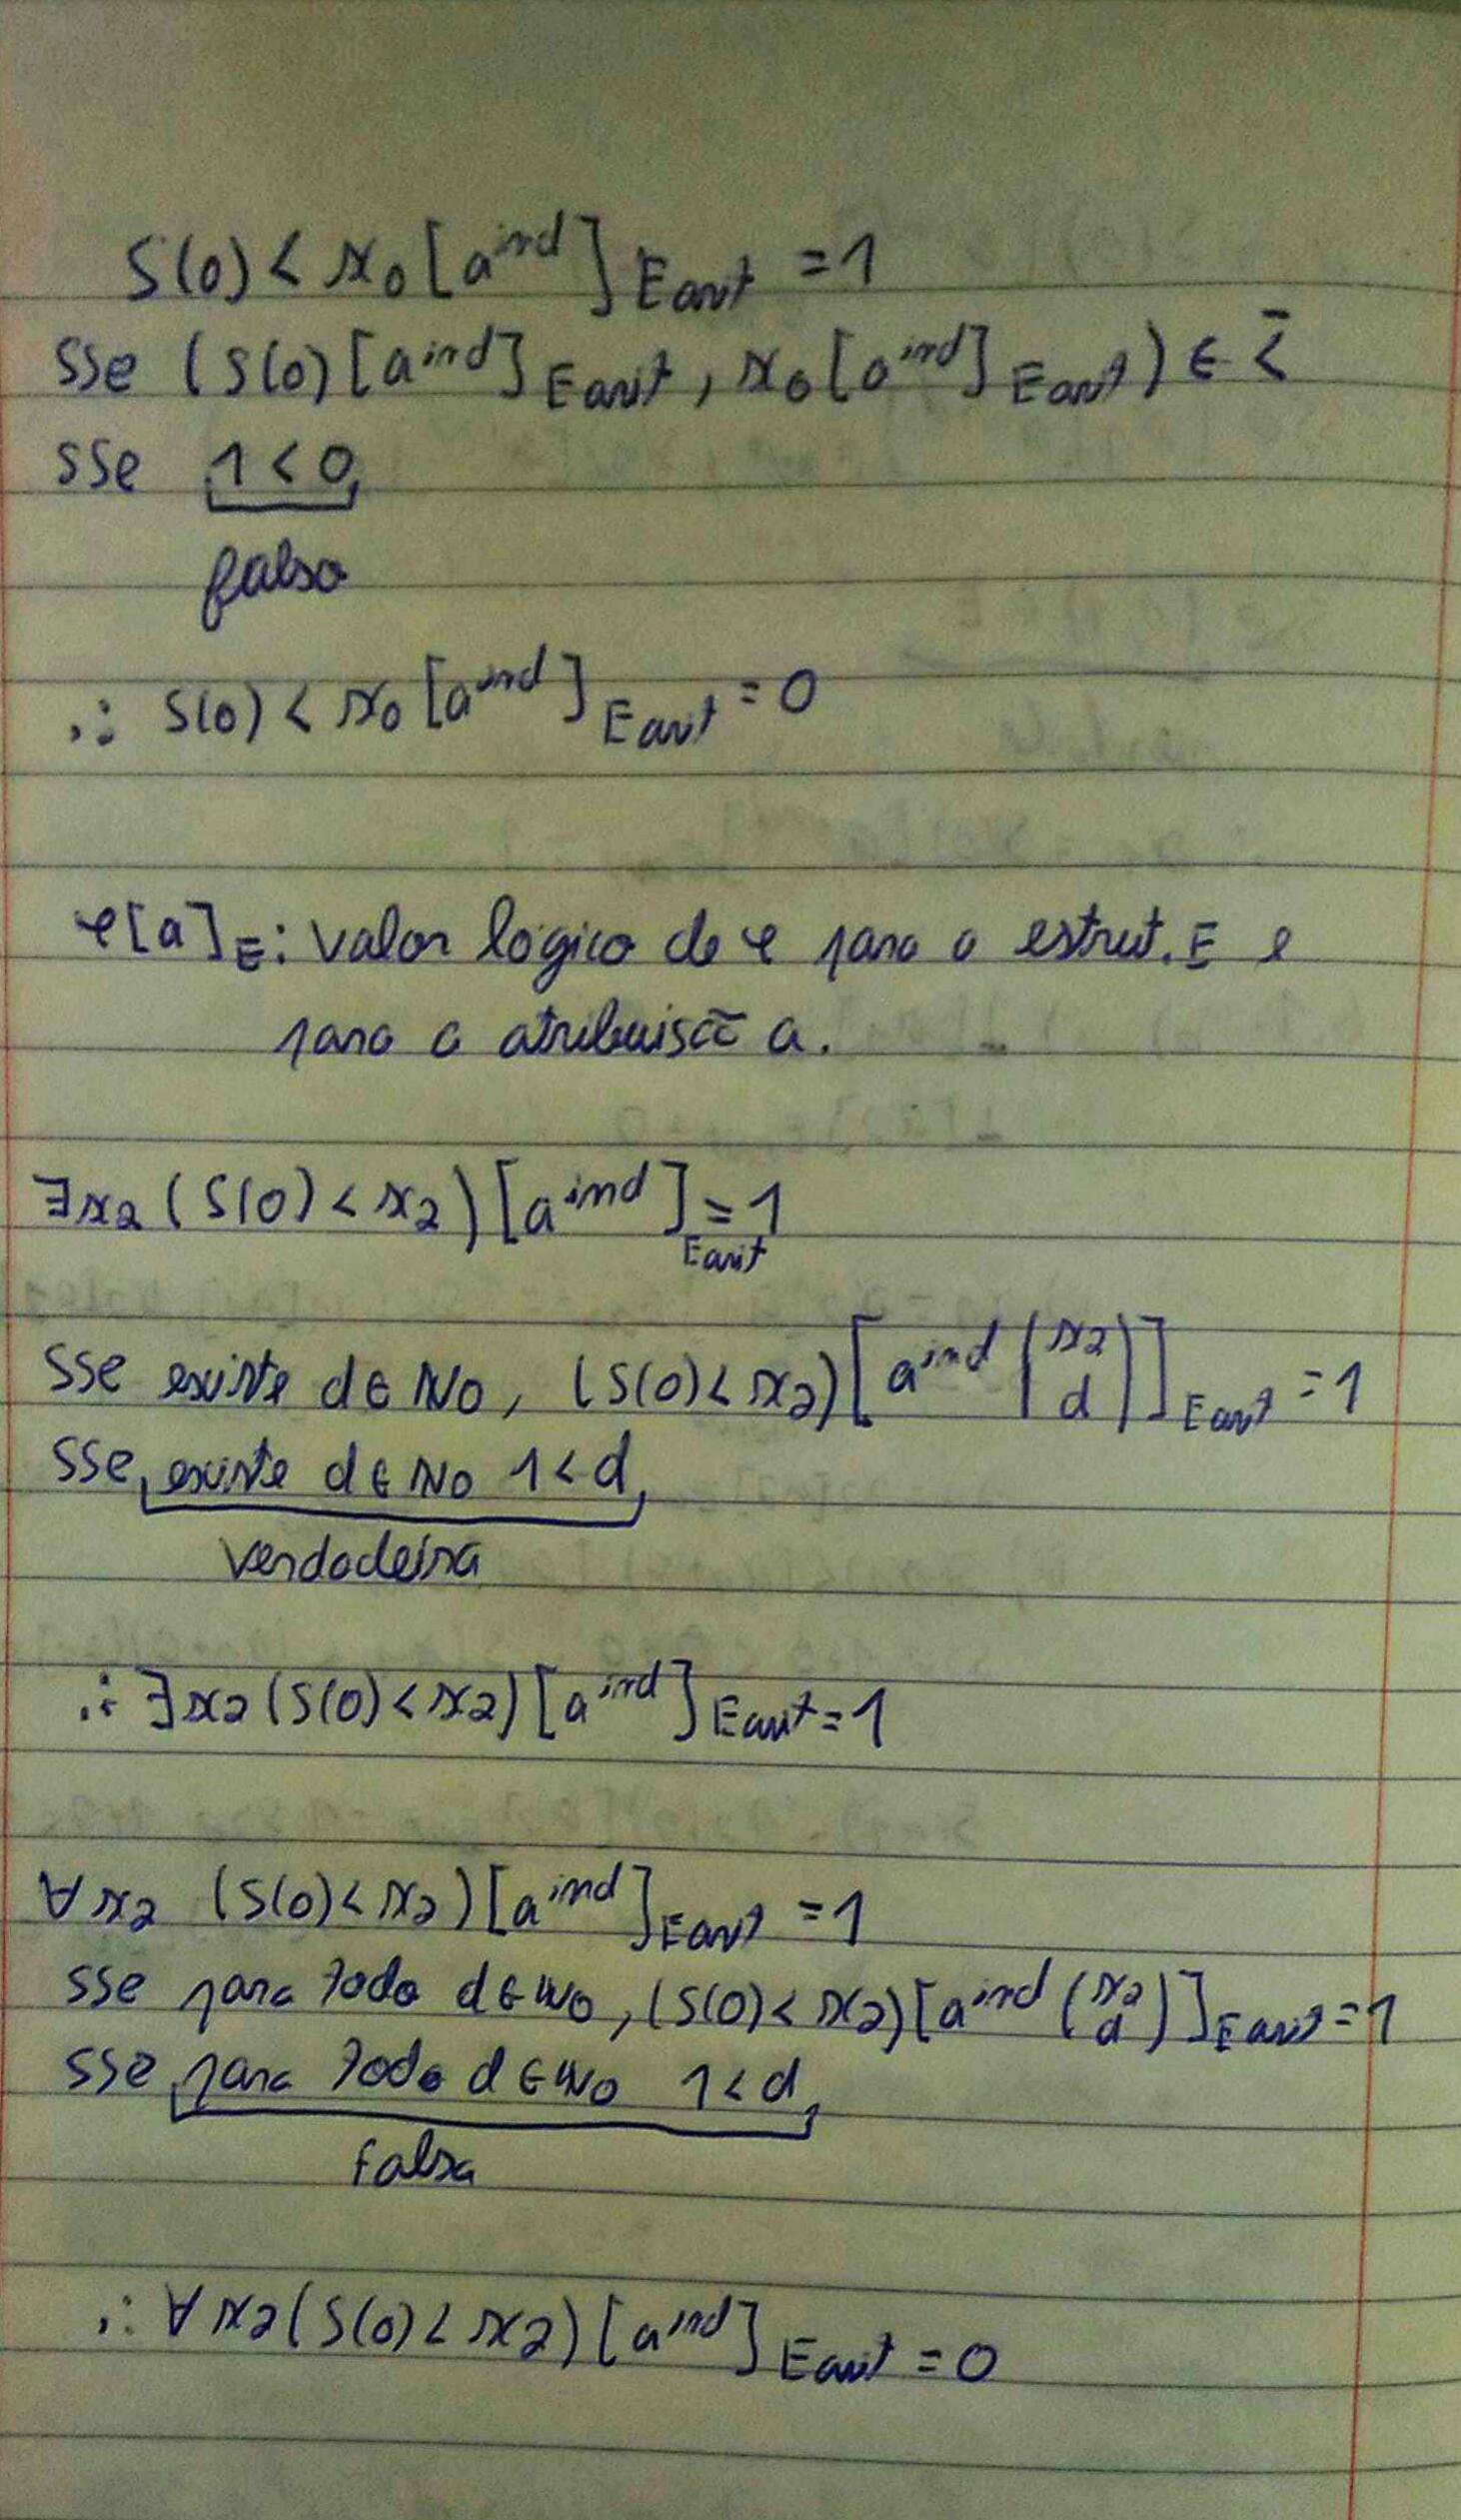 S(0) < x₀ [a^ind]_Earit = 1
sse (S(0)[a^ind]_Earit, x₀[a^ind]_Earit) ∈ <̄
sse 1 < 0
falso
∴ S(0) < x₀ [a^ind]_Earit = 0
φ[a]_E: valor lógico de φ para a estrut. E e
para a atribuisão a.
∃x₂ (S(0) < x₂) [a^ind]_Earit = 1
sse existe d ∈ ℕ₀, (S(0) < x₂) [a^ind (x₂ d)]_Earit = 1
sse existe d ∈ ℕ₀ 1 < d
verdadeira
∴ ∃x₂ (S(0) < x₂) [a^ind]_Earit = 1
∀x₂ (S(0) < x₂) [a^ind]_Earit = 1
sse para todo d ∈ ℕ₀, (S(0) < x₂) [a^ind (x₂ d)]_Earit = 1
sse para todo d ∈ ℕ₀ 1 < d
falsa
∴ ∀x₂ (S(0) < x₂) [a^ind]_Earit = 0